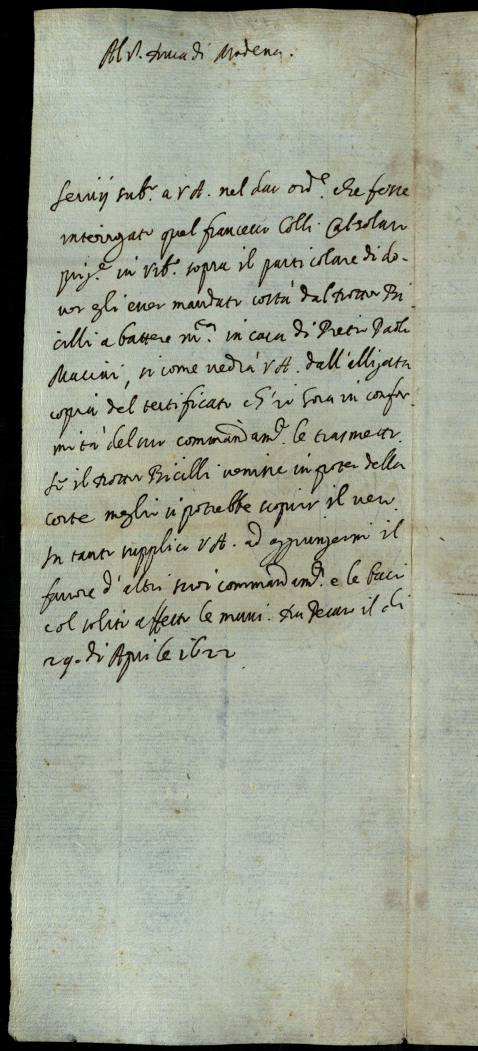 Al S. Duca di Modena.
Scrivij sub.º a V A. nel suo ord.e che fosse
interrogato quel francesco Colli Calzolaro
prig.e in Urb.º sopra il particolare di do-
ver gli haver mandato costà dal Dottor Bi
cilli a battere m.ta in casa di Pietro Paolo
Macini, si come vedrà V A. dall'alligata
copia del testificato ch'io hora in confor
mità del suo commandam.to le trasmetto.
Se il Dottor Bicilli venisse in poter della
corte meglio si potrebbe scoprir il vero.
In tanto supplico V A. ad aggiungermi il
favore d'altri suoi commandam.ti e le bacio
col solito affetto le mani. Da Pesaro il di
29. di Aprile 1622